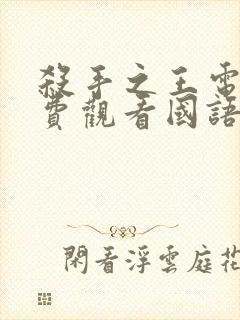 殺手之王電
費觀看國語
閑看浮雲庭花